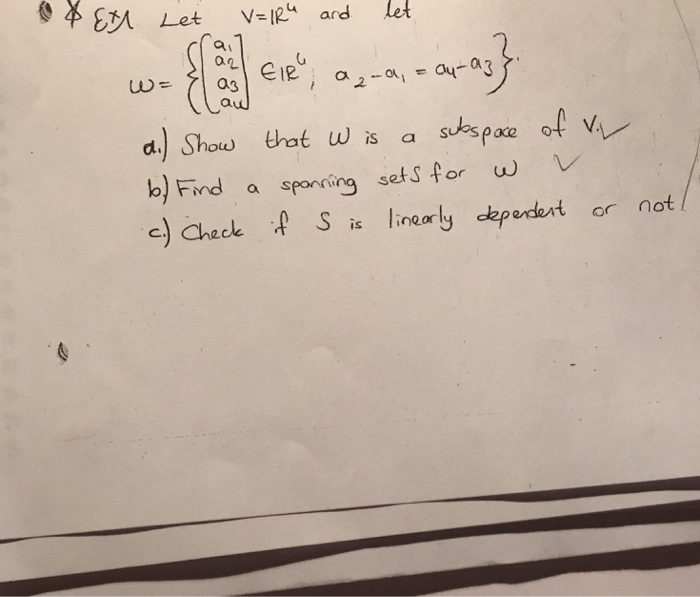 Ex1 Let V=ℝ⁴ and let
W = { [a₁ a₂ a₃ a₄] ∈ ℝ⁴ ; a₂-a₁ = a₄-a₃ }.
a.) Show that W is a subspace of V. ✓
b.) Find a spanning set S for W ✓
c.) Check if S is linearly dependent or not